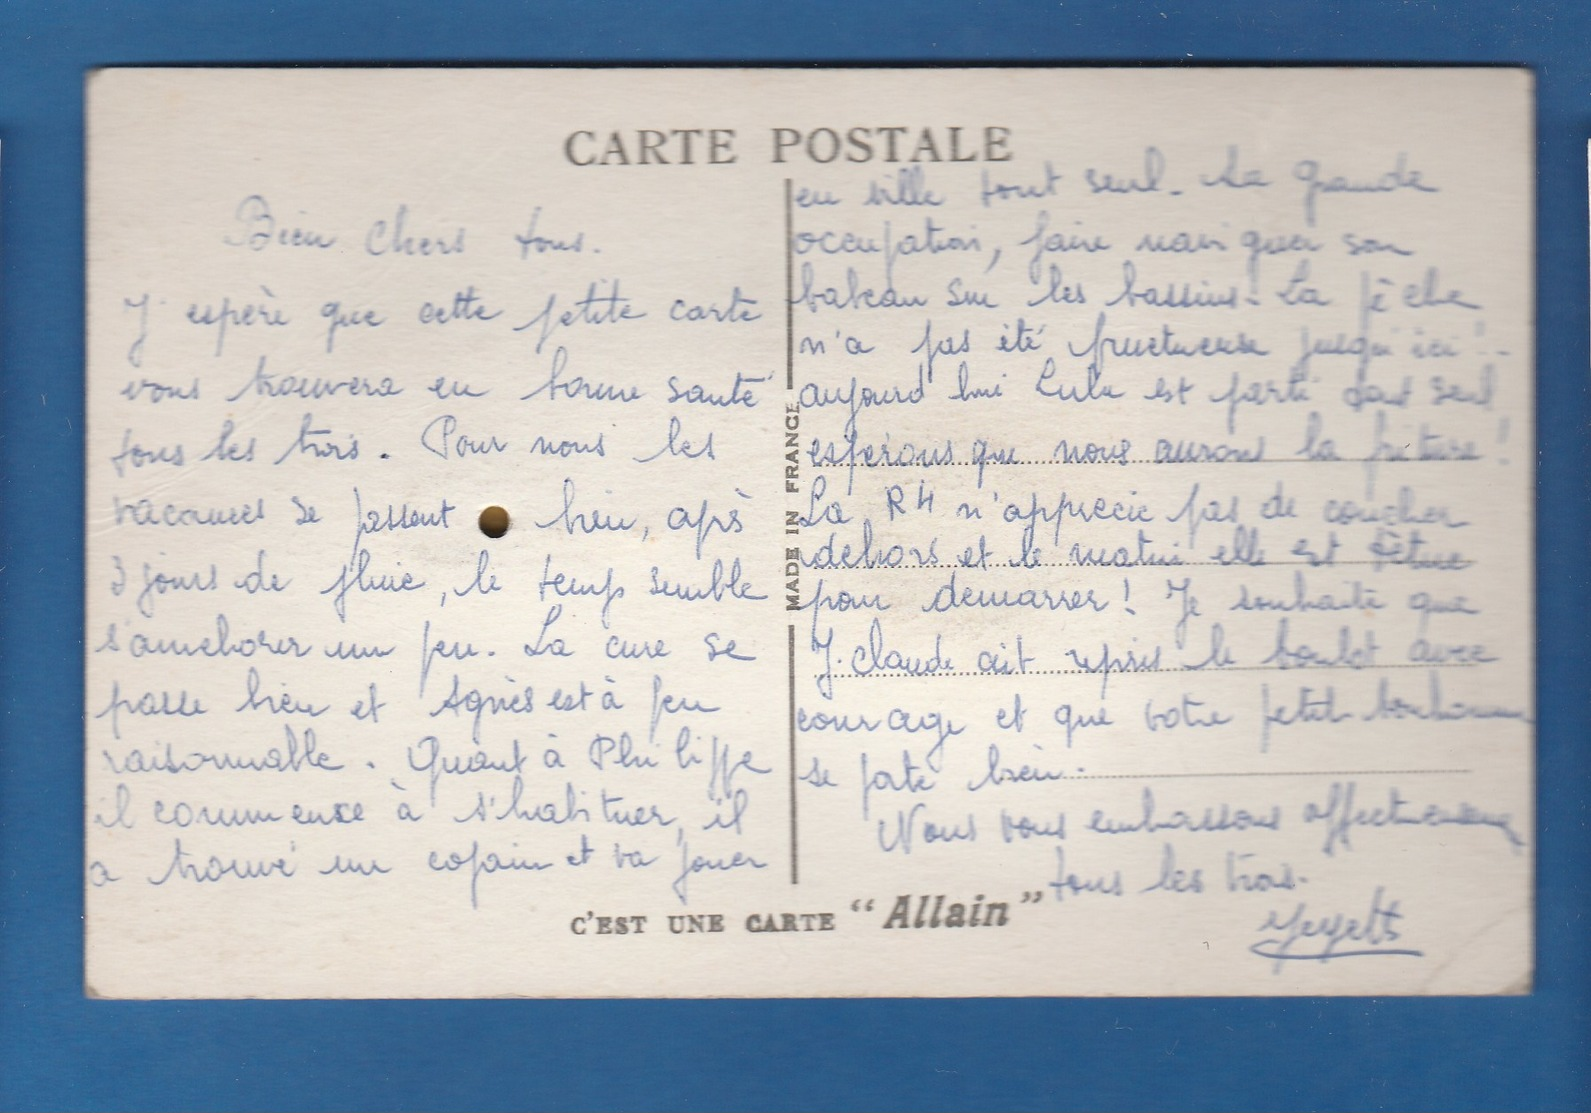 CARTE POSTALE
Bien Chers tous.
J'espère que cette petite carte
vous trouvera en bonne santé
tous les trois. Pour nous les
vacances se passent bien, après
3 jours de pluie, le temps semble
s'ameliorer un peu. La cure se
passe bien et Agnès est à peu
raisonnable. Quant à Philippe
il commence à s'habituer, il
a trouvé un copain et va jouer
MADE IN FRANCE
en ville tout seul. Sa grande
occupation, faire naviguer son
bateau sur les bassins. La pêche
n'a pas été fructueuse jusqu'ici !
aujourd'hui Lulu est parti tout seul
espérons que nous aurons la friture !
La R4 n'apprecie pas de coucher
dehors et le matin elle est têtue
pour demarrer ! Je souhaite que
J. Claude ait repris le boulot avec
courage et que votre petit bonhomme
se porte bien.
Nous vous embrassons affectueusement
tous les trois.
C'EST UNE CARTE "Allain"